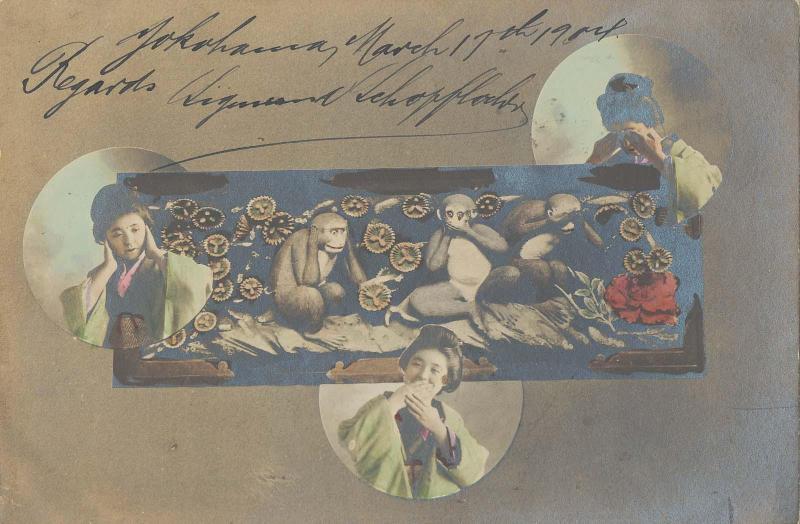 Yokohama, March 17th 1904.
Regards Sigmund